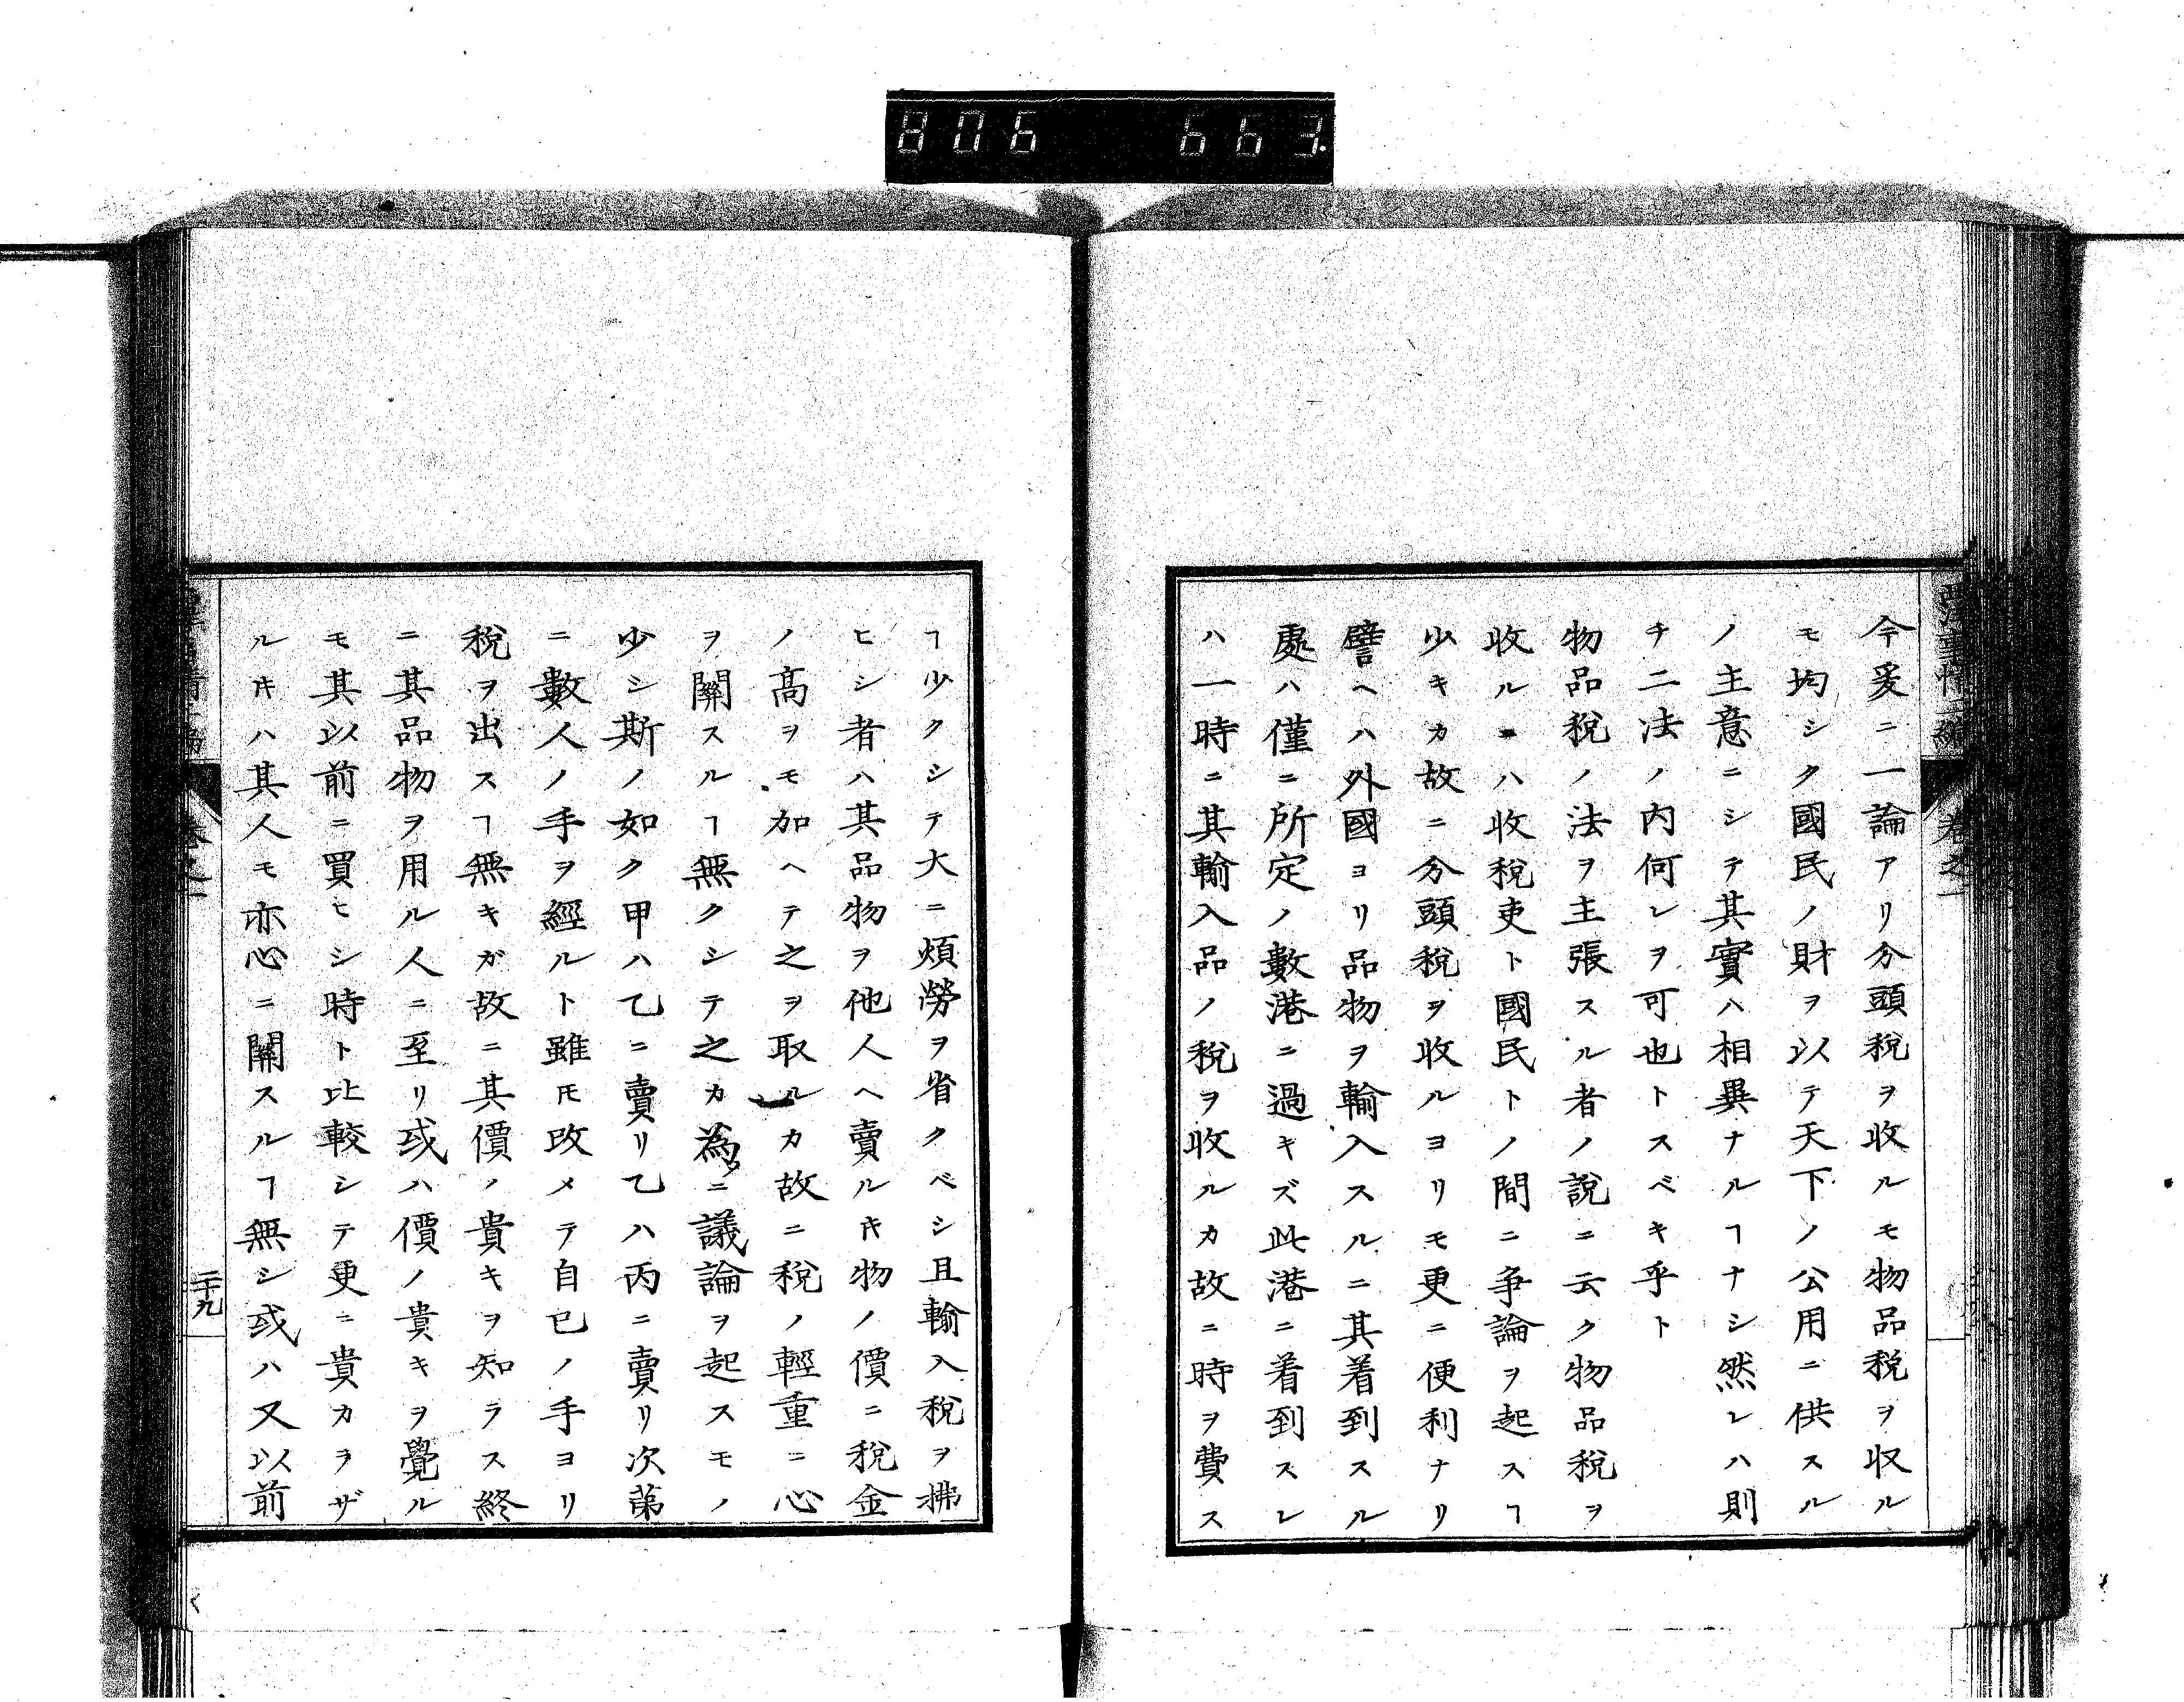 806 663.
今爰ニ一論アリ分頭税ヲ收ルモ物品税ヲ収ル
モ均シク國民ノ財ヲ以テ天下ノ公用ニ供スル
ノ主意ニシテ其實ハ相異ナルヿナシ然レハ則
チ二法ノ内何レヲ可也トスベキ乎ト
物品税ノ法ヲ主張スル者ノ說ニ云ク物品税ヲ
收ルニハ收税吏ト國民トノ間ニ爭論ヲ起スヿ
少キカ故ニ分頭税ヲ收ルヨリモ更ニ便利ナリ
譬ヘハ外國ヨリ品物ヲ輸入スルニ其着到スル
處ハ僅ニ所定ノ數港ニ過キズ此港ニ着到スレ
ハ一時ニ其輸入品ノ税ヲ收ルカ故ニ時ヲ費ス
ヿ少クシテ大ニ煩勞ヲ省クベシ且輸入税ヲ拂
ヒシ者ハ其品物ヲ他人ヘ賣ルキ物ノ價ニ税金
ノ高ヲモ加ヘテ之ヲ取ルカ故ニ税ノ輕重ニ心
ヲ關スルヿ無クシテ之カ為メニ議論ヲ起スモノ
少シ斯ノ如ク甲ハ乙ニ賣リ乙ハ丙ニ賣リ次苐
ニ數人ノ手ヲ經ルト雖モ改メテ自己ノ手ヨリ
税ヲ出スヿ無キガ故ニ其價ノ貴キヲ知ラス終
ニ其品物ヲ用ル人ニ至リ或ハ價ノ貴キヲ覺ル
モ其以前ニ買ヒシ時ト比較シテ更ニ貴カラザ
ルキハ其人モ亦心ニ關スルヿ無シ或ハ又以前
二十九